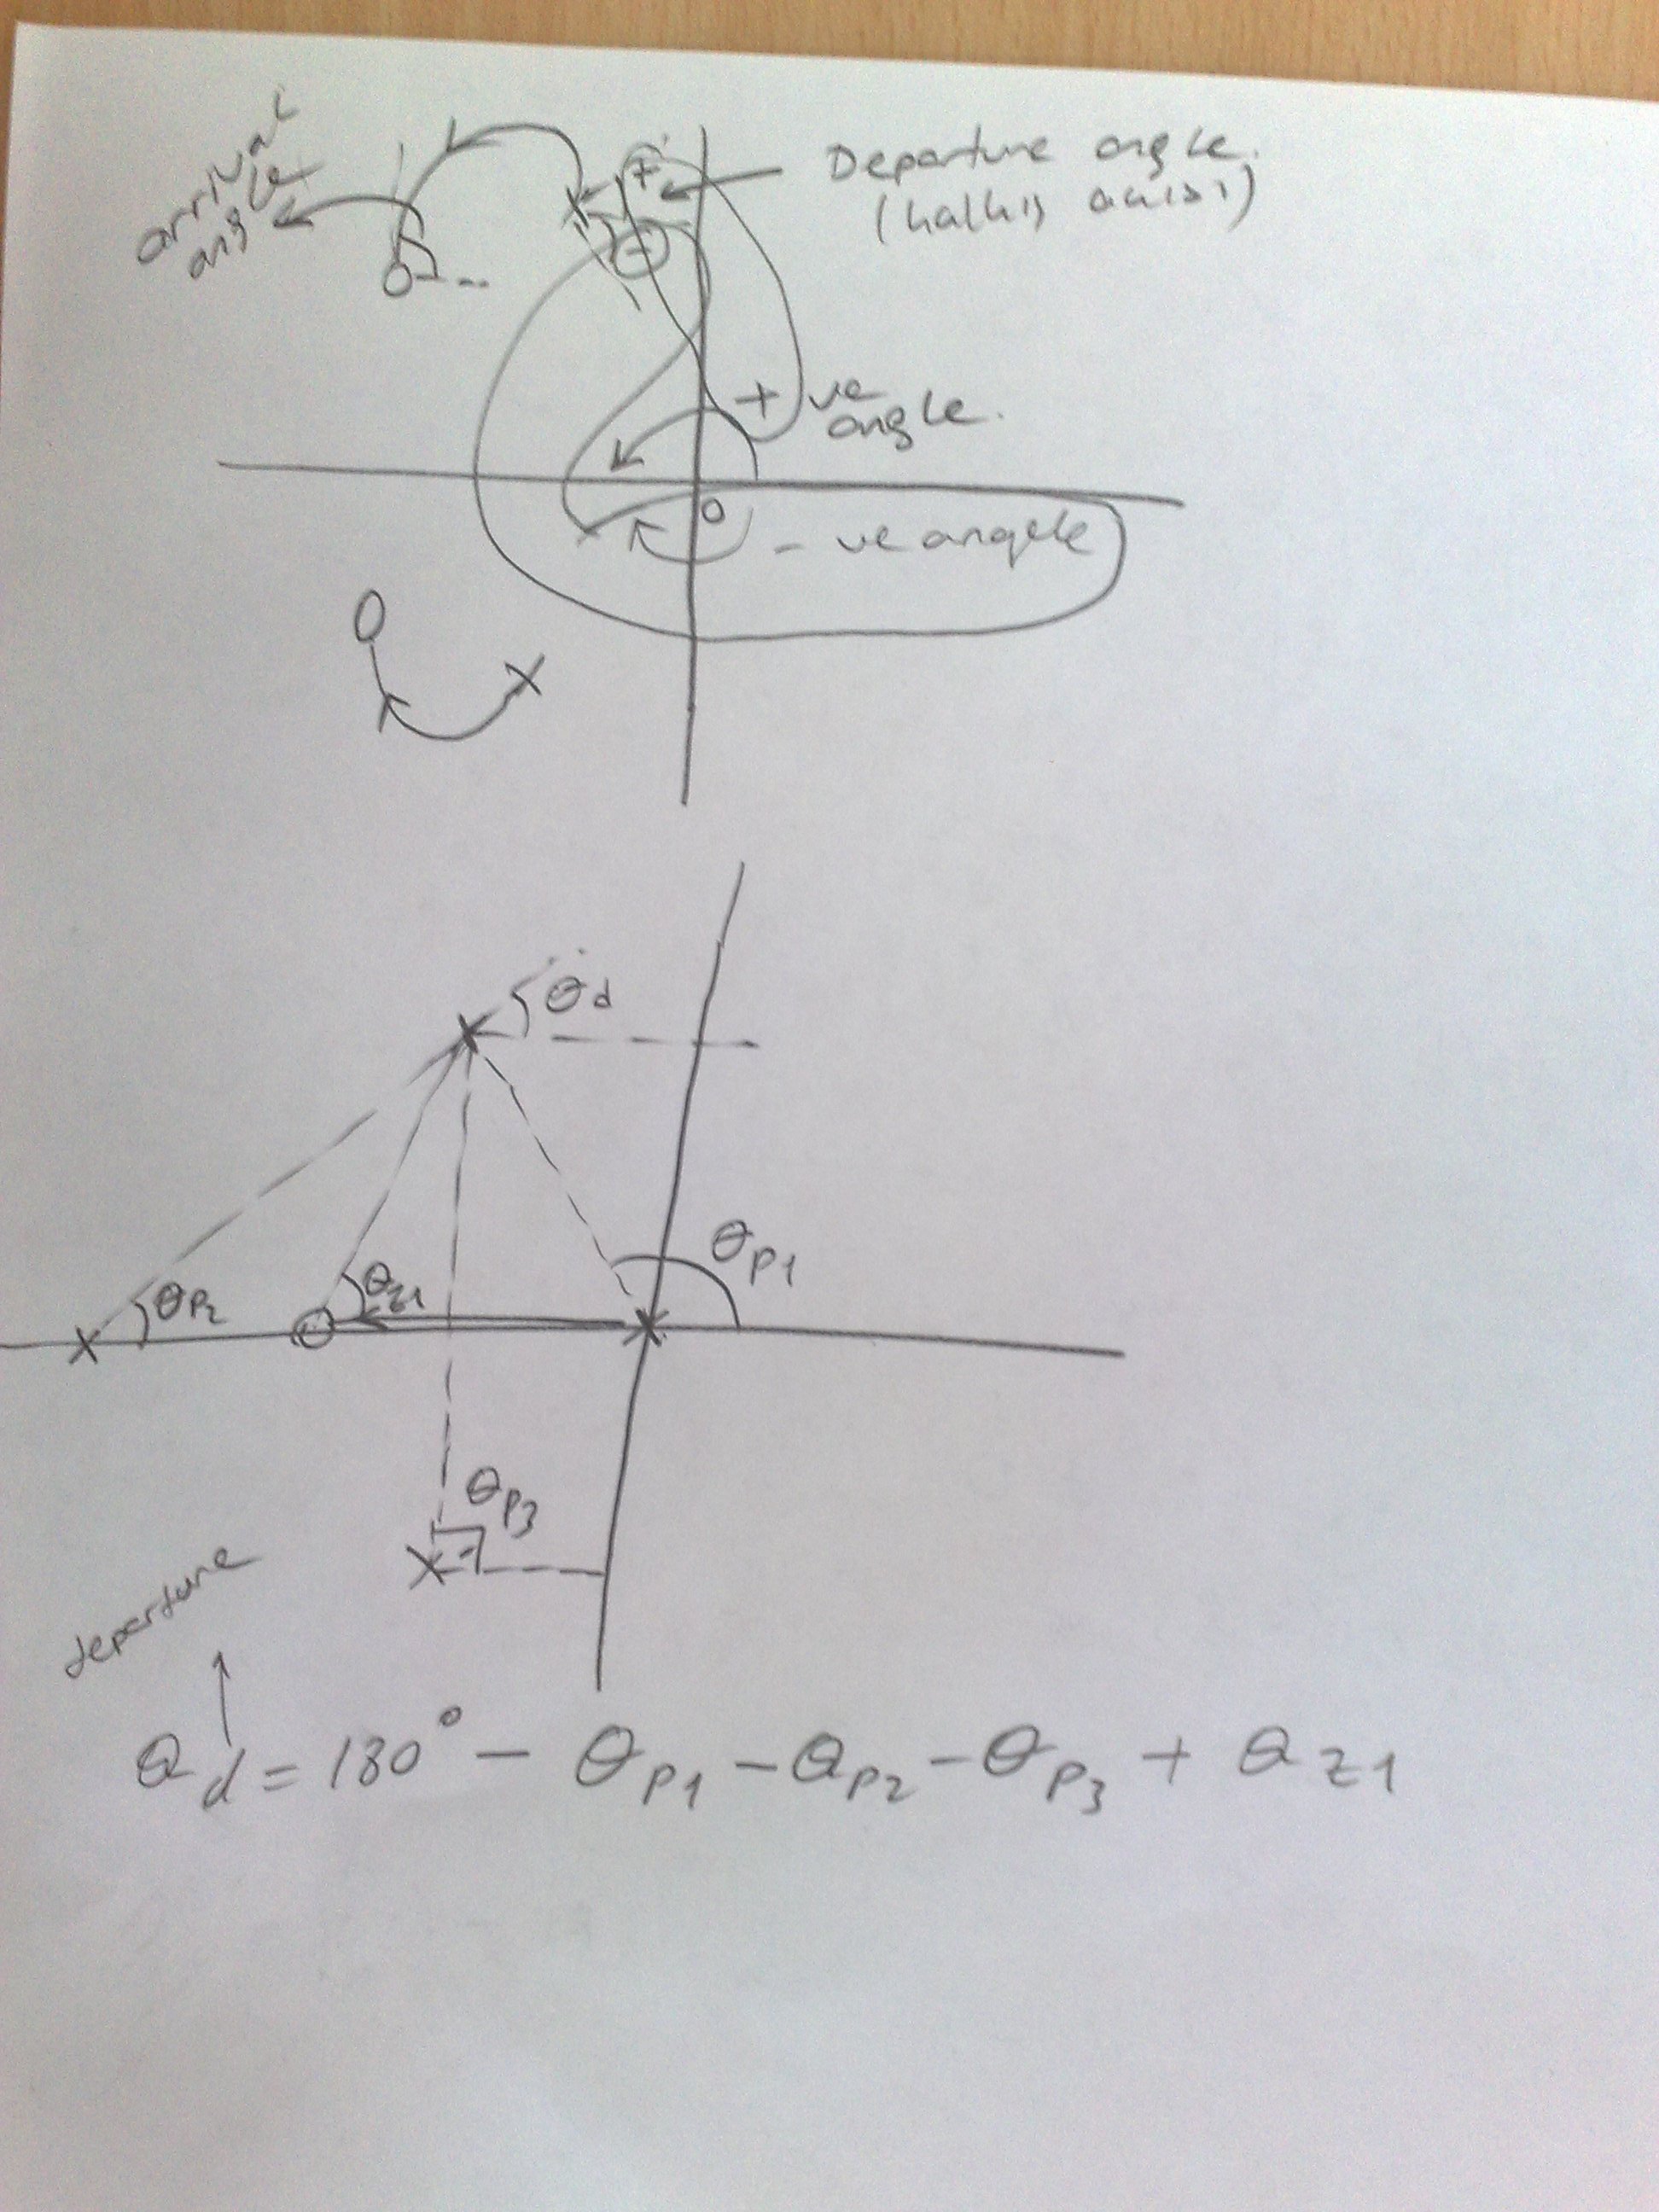 arrival
angle
Departure angle.
(kalkış acısı)
+
-
+ ve
angle.
O
- ve angele
O
X
θd
θp2
θz1
θp1
θp3
departure
θd = 180° - θp1 - θp2 - θp3 + θz1